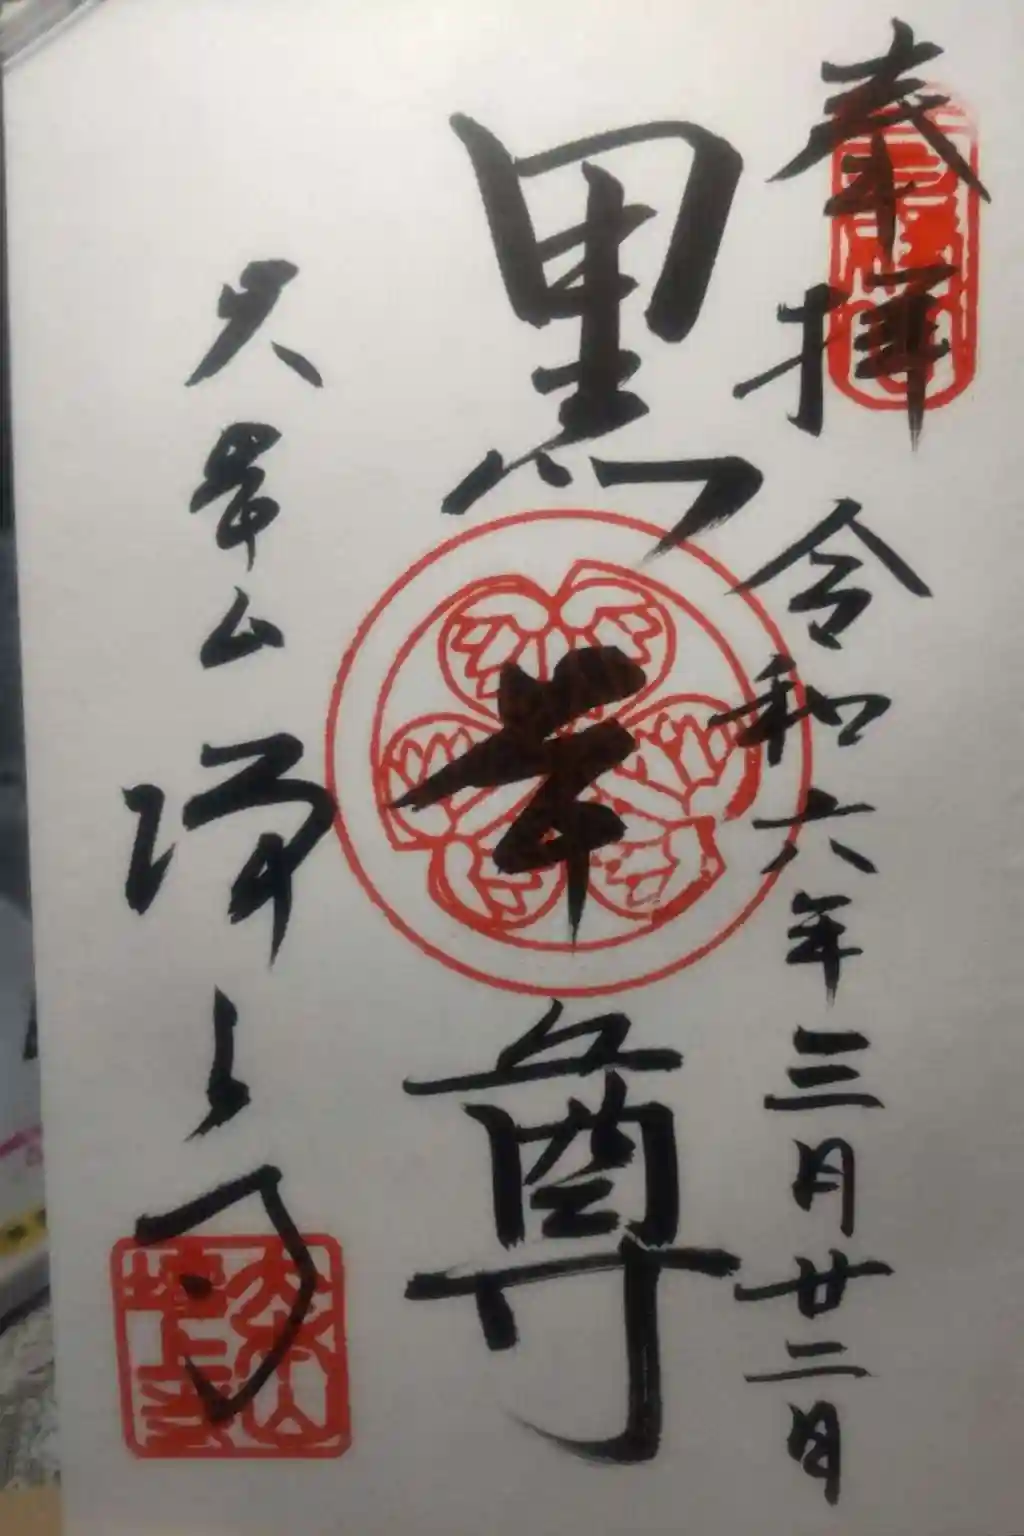 奉拝 令和六年三月廿二日
黒本尊
大本山 増上寺